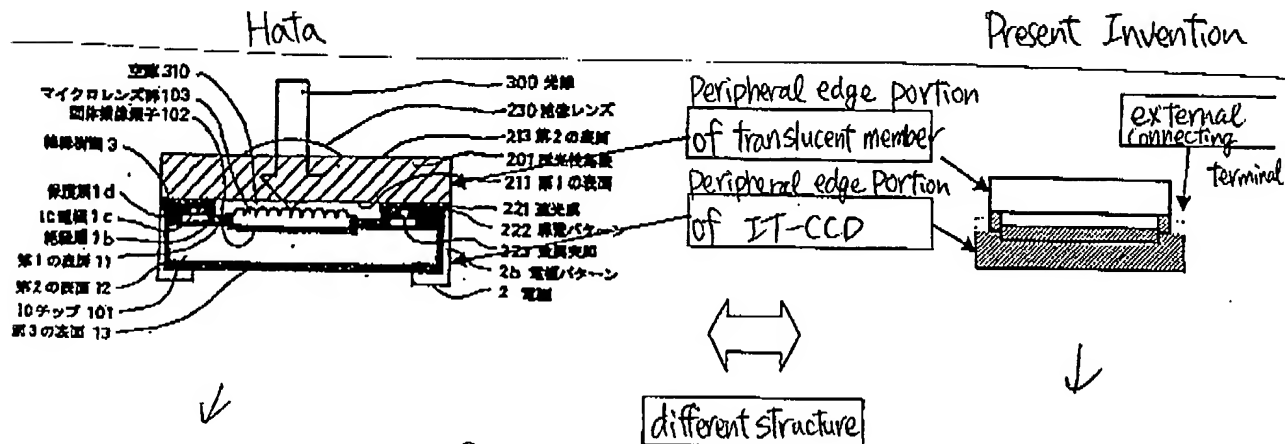 Hata
Present Invention
空隙 310
マイクロレンズ群 103
固体撮像素子 102
絶縁樹脂 3
保護膜 1d
IC電極 1c
絶縁層 1b
第1の表面 11
第2の表面 12
ICチップ 101
第3の表面 13
300 光線
230 結像レンズ
213 第2の表面
201 透光性基板
211 第1の表面
221 遮光膜
222 導電パターン
223 金属突起
2b 電極パターン
2 電極
Peripheral edge portion
of translucent member
Peripheral edge portion
of IT-CCD
external
connecting
terminal
different structure